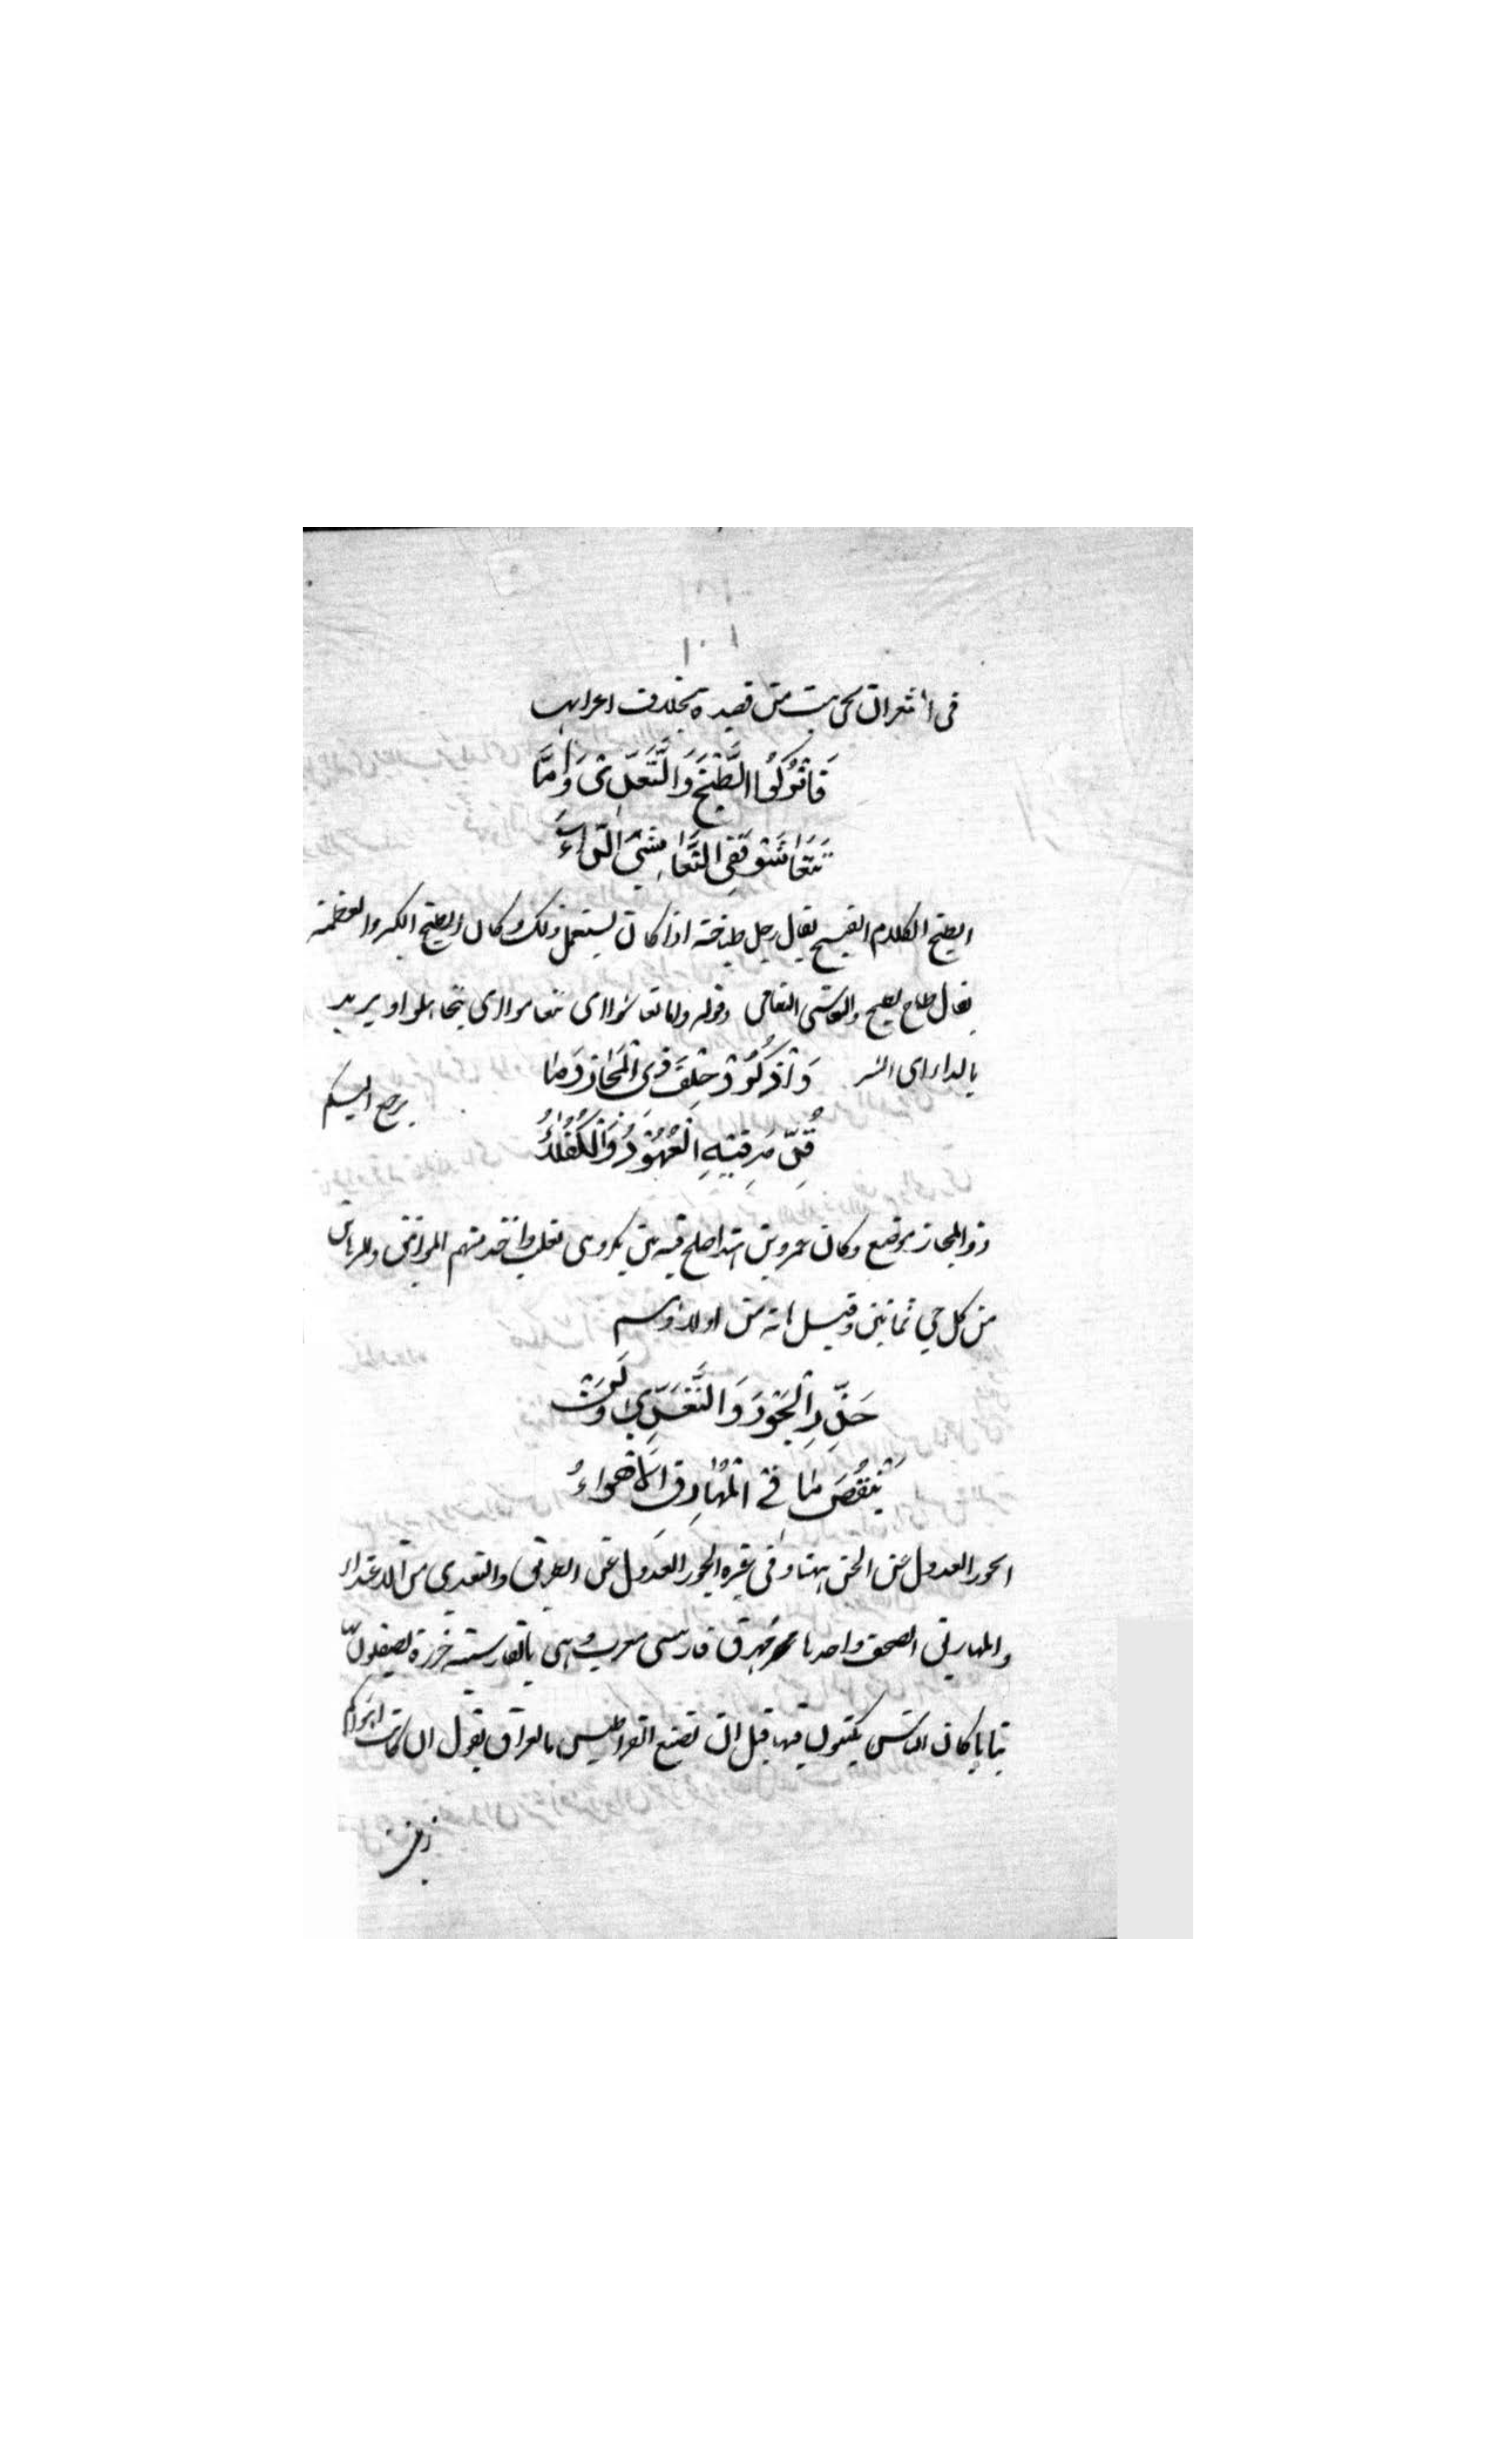 ١٠١
في اشعر ان يجى بيت من قصيدة بخلاف اعرابها
فَاتْرُكُوا الطَّيْخَ وَالتَّعَدِّيْ وَاِمَّا
تَتَعَاشَوْا فَفِي التَّعَاشِيْ الدَّاءُ
الطيخ الكلام القبيح يقال رجل طياخة اذا كان يستعمل ذلك وكان الطيخ الكبر والعظمة
يقال طاخ يطيخ والتعاشى التعامى وقوله واما تعاشوا اى تتعاموا اى تتجاهلوا ويريد
بالداء اى الشر
يرجع اليكم
وَاذْكُرُوْا حِلْفَ ذِى الْمَجَازِ وَمَا
قُدِّمَ فِيْهِ الْعُهُوْدُ وَالْكُفَلَاءُ
ذو المجاز موضع وكان عمرو بن هند اصلح فيه بين بكر وبنى تغلب واخذ منهم المواثيق والرهائن
من كل حي ثمانين وقيل انه من اولادهم
حَذَرَ الْجَوْرِ وَالتَّعَدِّيْ وَلَنْ
يَنْقُضَ مَا فِي الْمَهَارِقِ الْاَهْوَاءُ
الجور العدول عن الحق ههنا وفى غيره الجور العدول عن الطريق والتعدي من الاعتداء
والمهاريق الصحف واحدها مهرق فارسى معرب وهى بالفارسية خرزة يصقلون بها
ثيابا كان الناس يكتبون فيها قبل ان تصنع القراطيس بالعراق يقول ان كانت اهواءكم